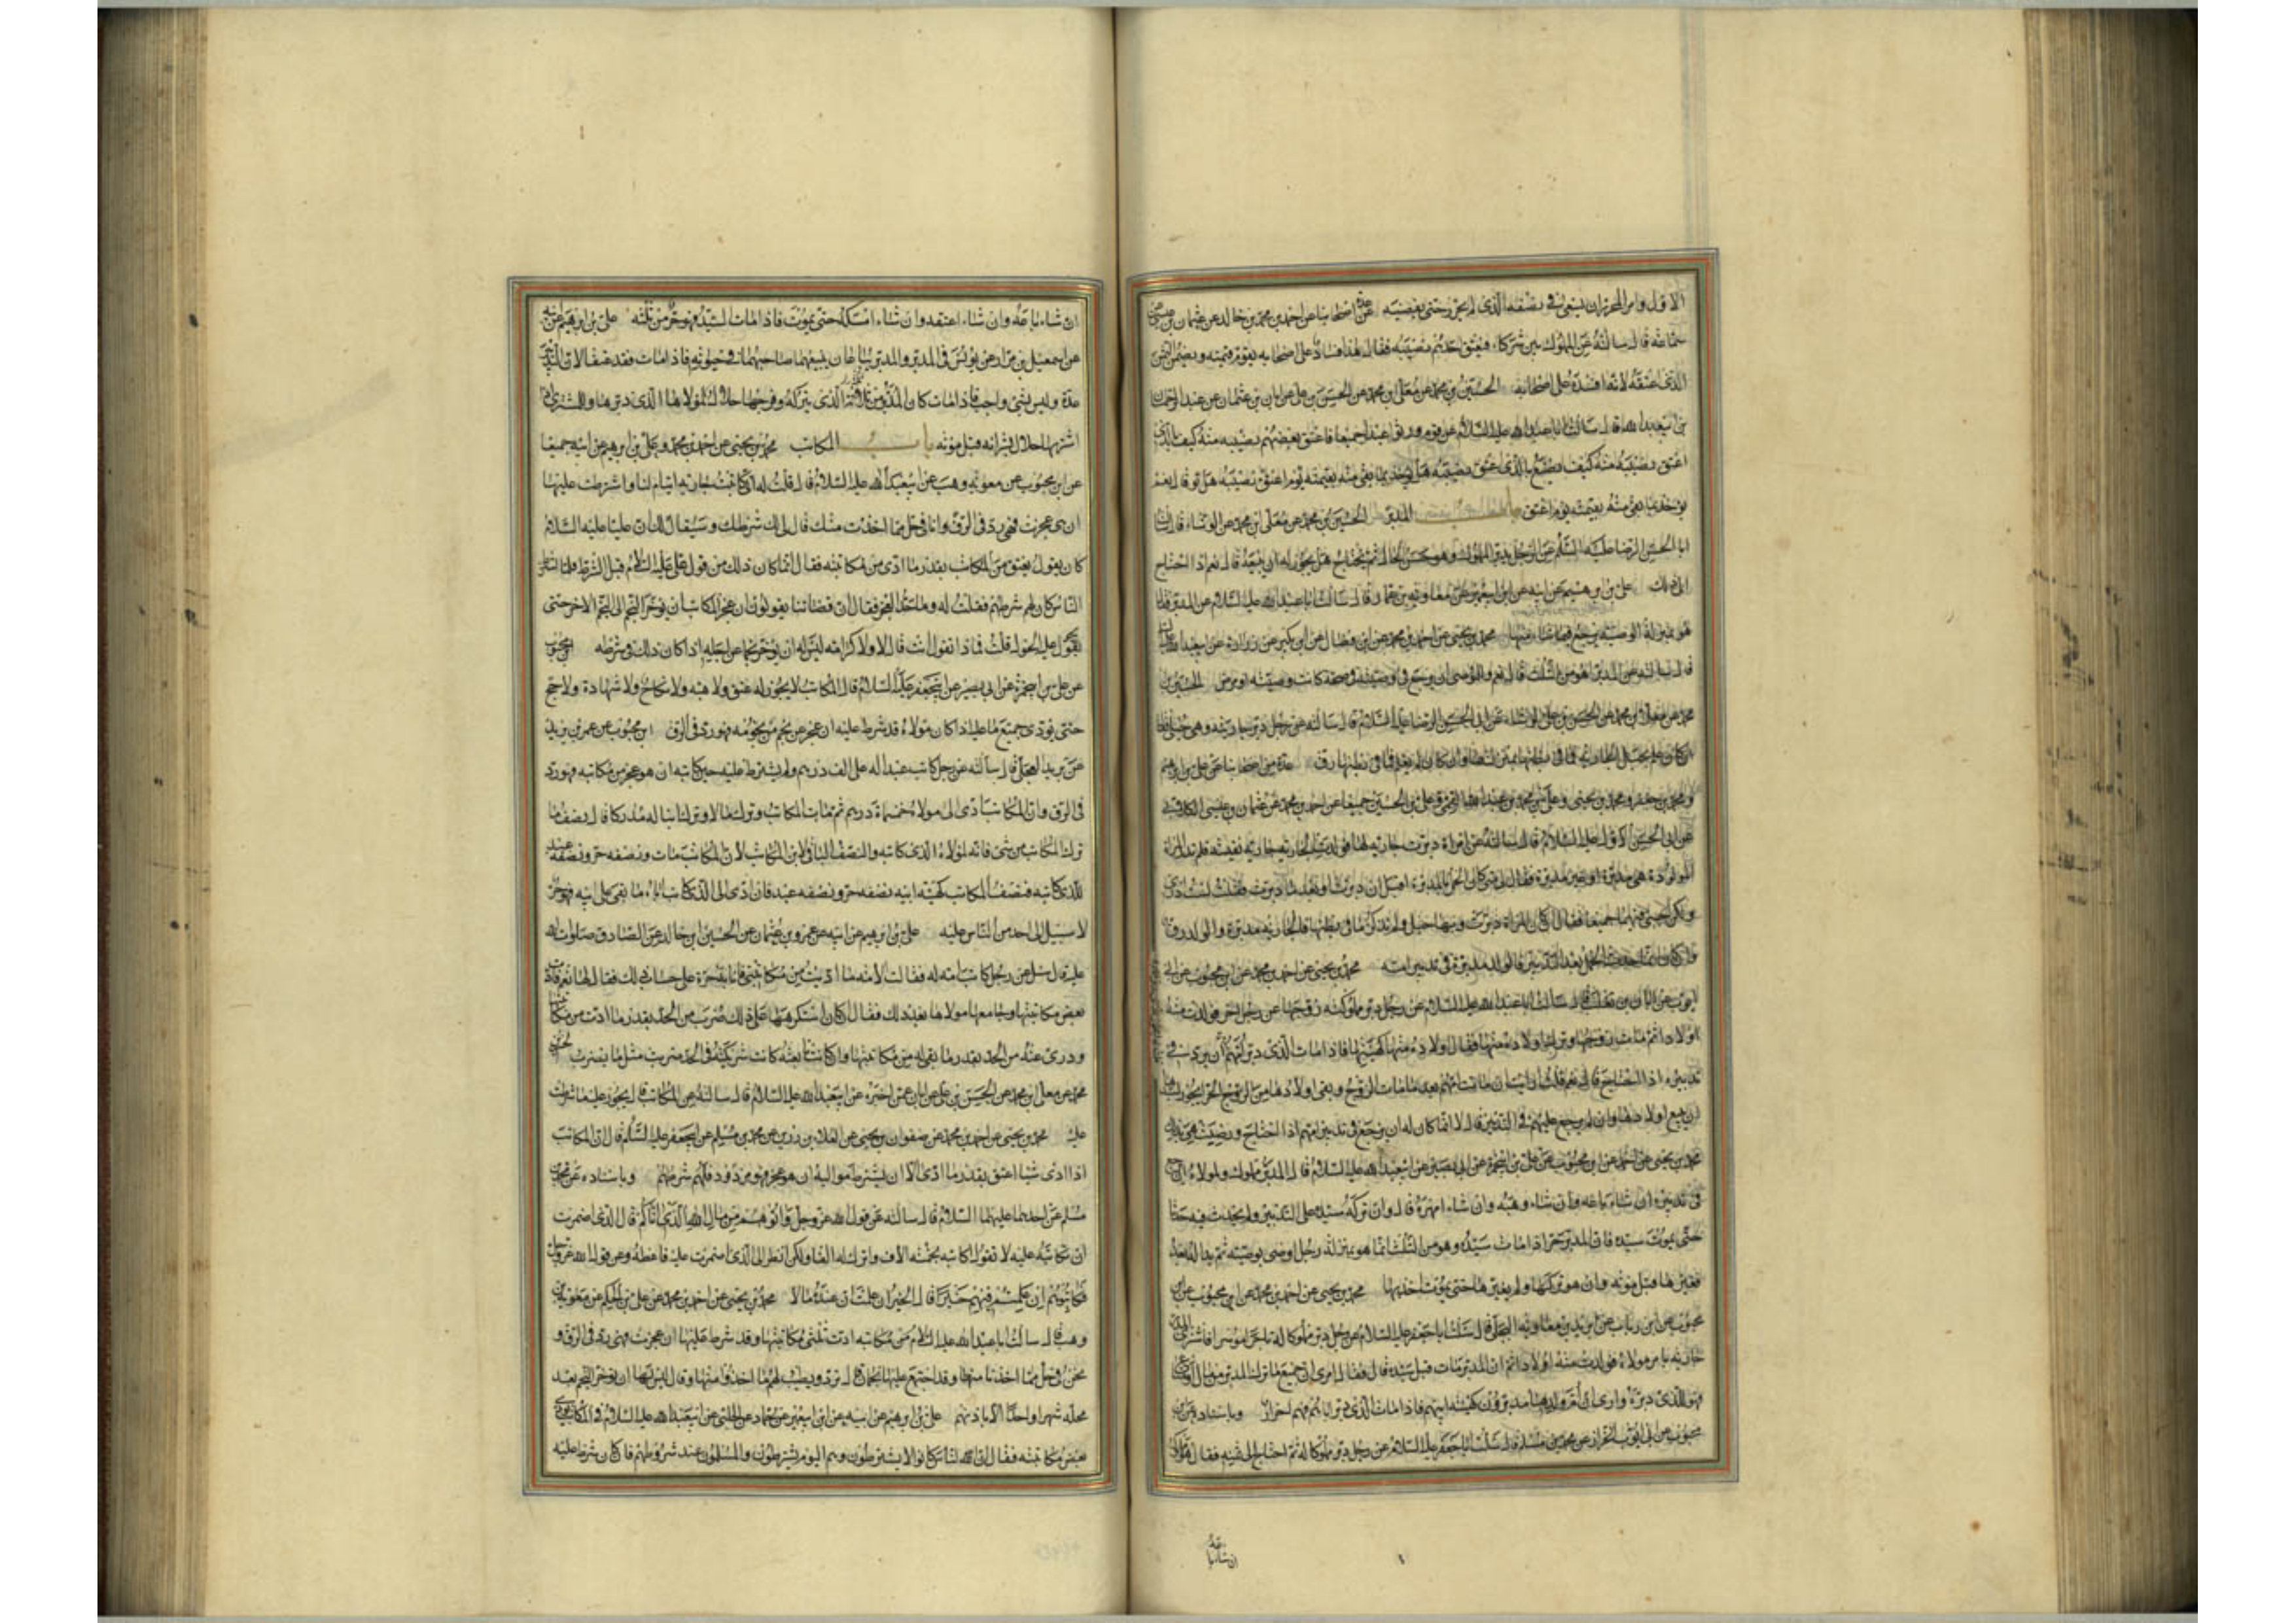 الاول وامر الاخران يسعى في نصفه الذي لم يحرر حتى يقضيه عدة من اصحابنا عن احمد بن محمد بن خالد عن عثمان بن عيسى عن
سماعة قال سالته عن المملوك بين شركاء فيعتق احدهم نصيبه فقال هذا فساد على اصحابه يقوم قيمته ويضمن الثمن
الذي اعتقه لانه افسده على اصحابه الحسين بن محمد عن معلى بن محمد عن الحسن بن علي عن ابان بن عثمان عن عبد الرحمان
بن ابي عبد الله قال سالت ابا عبد الله عليه السلام عن قوم ورثوا عبدا جميعا فاعتق بعضهم نصيبه منه كيف بالذي
اعتق نصيبه منه كيف يصنع بالذي اعتق نصيبه هل يؤخذ بما بقي منه بقيمته يوم اعتق نصيبه هل قال نعم
يؤخذ بما بقي منه بقيمته يوم اعتق باب المدبر الحسين بن محمد عن معلى بن محمد عن الوشاء قال سالت
ابا الحسن الرضا عليه السلم عن الرجل يدبر المملوك وهو حسن الحال ثم يحتاج هل يجوز له ان يبيعه قال نعم اذا احتاج
الى ذلك علي بن ابرهيم عن ابيه عن ابن ابي عمير عن معاوية بن عمار قال سالت ابا عبد الله عليه السلام عن المدبر فقال
هو بمنزلة الوصية يرجع فيما شاء منها محمد بن يحيى عن احمد بن محمد عن ابن فضال عن ابن بكير عن زرارة عن ابي عبد الله عليه السلام
قال سالته عن المدبر اهو من الثلث قال نعم وللموصي ان يرجع في وصيته في صحة كانت وصيته او مرض الحسين بن
محمد عن معلى بن محمد عن الحسن بن علي الوشاء عن ابي الحسن الرضا عليه السلام قال سالته عن رجل دبر جارية وهي حبلى فقال
ان كان علم بحبل الجارية فما في بطنها بمنزلتها وان كان لم يعلم فما في بطنها رق عدة من اصحابنا عن علي بن ابرهيم
ومحمد بن جعفر ومحمد بن يحيى وعلي بن محمد بن عبد الله القمي وعلي بن الحسين جميعا عن احمد بن محمد عن عثمان بن عيسى الكلابي
عن ابي الحسن الاول عليه السلام قال سالته عن امراة دبرت جارية لها فولدت الجارية جارية نفيسة فلم تدر المراة
المولودة هي مدبرة او غير مدبرة فقال لي متى كان الحمل بالمدبرة اقبل ان دبرت او بعد ما دبرت فقلت لست ادري
ولكن اجبني فيهما جميعا فقال ان كانت المراة دبرت وبها حبل ولم تذكر ما في بطنها فالجارية مدبرة والولد رق
وان كان انما حدث الحمل بعد التدبير فالولد مدبر في تدبير امه محمد بن يحيى عن احمد بن محمد عن ابن محبوب عن ابي
ايوب عن ابان بن تغلب قال سالت ابا عبد الله عليه السلام عن رجل دبر مملوكته زوجها من رجل اخر فولدت منه
اولادا ثم مات زوجها وترك اولاده منها فقال اولاده منها كهيئتها فاذا مات الذي دبر امهم
تدبيره اذا احتاج قال نعم قلت ارايت ان ماتت امهم بعد ما مات الزوج وبقي اولادها من الزوج الحر ايجوز لسيدها
ان يبيع اولادها وان يرجع عليهم في التدبير قال لا انما كان له ان يرجع في تدبير امهم اذا احتاج ورضيت هي بذلك
محمد بن يحيى عن احمد عن ابن محبوب عن علي بن ابي حمزة عن ابي بصير عن ابي عبد الله عليه السلام قال المدبر مملوك ولمولاه ان يرجع
في تدبيره ان شاء باعه وان شاء وهبه وان شاء امهره قال وان تركه سيده على التدبير ولم يحدث فيه حدثا
حتى يموت سيده فان المدبر حر اذا مات سيده وهو من الثلث انما هو بمنزلة رجل اوصى بوصية ثم بدا له بعد
فغيرها قبل موته وان هو تركها ولم يغيرها حتى يموت اخذ بها محمد بن يحيى عن احمد بن محمد عن ابن محبوب عن ابن
محبوب عن ابن رئاب عن بريد بن معاوية العجلي قال سالت ابا جعفر عليه السلام عن رجل دبر مملوكا له تاجرا موسرا فاشترى المدبر
جارية بامر مولاه فولدت منه اولادا ثم ان المدبر مات قبل سيده قال فقال ارى ان جميع ما ترك المدبر من مال او متاع
فهو للذي دبره وارى ان ام ولده وولدها مدبرون كهيئة ابيهم فاذا مات الذي دبر اباهم فهم احرار وباسناده عن ابن
محبوب عن ابي ايوب الخزاز عن محمد بن مسلم قال سالت ابا جعفر عليه السلام عن رجل دبر مملوكا له ثم احتاج الى ثمنه فقال هو مملوكه
ان شاء باعه
ان شاء باعه وان شاء اعتقه وان شاء امسكه حتى يموت فاذا مات السيد فهو حر من ثلثه علي بن ابرهيم عن ابيه
عن اسمعيل بن مرار عن يونس في المدبر والمدبرة يباعان يبيعهما صاحبهما في حيوته فاذا مات فقد عتقا لان التدبير
عدة وليس بشيء واجب فاذا مات كان المدبر من ثلثه الذي يتركه وفرجها حلال لمولاها الذي دبرها وللمشتري اذا
اشتراها حلال بشرائه قبل موته باب المكاتب محمد بن يحيى عن احمد بن محمد وعلي بن ابرهيم عن ابيه جميعا
عن ابن محبوب عن معوية بن وهب عن ابي عبد الله عليه السلام قال قلت له اني كاتبت جارية لايتام لنا واشترطت عليها
ان هي عجزت فهي رد في الرق وانا في حل مما اخذت منك قال لك شرطك وسيقال لك ان عليا عليه السلام
كان يقول يعتق من المكاتب بقدر ما ادى من مكاتبته فقال انما كان ذلك من قول علي عليه السلام قبل الشرط فلما اشترط
الناس كان لهم شرطهم فقلت له وما حد العجز فقال ان قضاتنا يقولون ان عجز المكاتب ان يؤخر النجم الى النجم الاخر حتى
يحول عليه الحول قلت فماذا تقول انت قال لا ولا كرامة ليس له ان يؤخر نجما عن اجله اذا كان ذلك في شرطه ابن محبوب
عن علي بن ابي حمزة عن ابي بصير عن ابي جعفر عليه السلام قال المكاتب لا يجوز له عتق ولا هبة ولا نكاح ولا شهادة ولا حج
حتى يؤدي جميع ما عليه اذا كان مولاه قد شرط عليه ان عجز عن نجم من نجومه فهو رد في الرق ابن محبوب عن عمر بن يزيد
عن بريد العجلي قال سالته عن رجل كاتب عبدا له على الف درهم ولم يشترط عليه حين كاتبه ان هو عجز من مكاتبته فهو رد
في الرق وان المكاتب ادى الى مولاه خمسماة درهم ثم مات المكاتب وترك مالا وترك ابنا له مدركا قال نصف ما
ترك المكاتب من شيء فانه لمولاه الذي كاتبه والنصف الباقي لابن المكاتب لان المكاتب مات ونصفه حر ونصفه عبد
للذي كاتبه فنصف المكاتب كهيئة ابيه نصفه حر ونصفه عبد فان ادى الى الذي كاتب اباه ما بقي على ابيه فهو حر
لا سبيل لاحد من الناس عليه علي بن ابرهيم عن ابيه عن عمرو بن عثمان عن الحسين بن خالد عن الصادق صلوات الله
عليه قال سئل عن رجل كاتب امة له فقالت الامة ما اديت من مكاتبتي فانا به حرة على حساب ذلك فقال لها نعم فادت
بعض مكاتبتها وجامعها مولاها بعد ذلك فقال ان كان استكرهها على ذلك ضرب من الحد بقدر ما ادت من مكاتبتها
ودرئ عنه من الحد بقدر ما بقي له من مكاتبتها وان كانت تابعته كانت شريكته في الحد ضربت مثل ما يضرب الحسين بن
محمد عن معلى بن محمد عن الحسن بن علي عن ابان عمن اخبره عن ابي عبد الله عليه السلام قال سالته عن المكاتب قال يجوز عليه ما شرطت
عليه محمد بن يحيى عن احمد بن محمد عن صفوان بن يحيى عن العلاء بن رزين عن محمد بن مسلم عن ابي جعفر عليه السلم قال ان المكاتب
اذا ادى شيئا اعتق بقدر ما ادى الا ان يشترط مواليه ان هو عجز فهو مردود فلهم شرطهم وباسناده عن محمد بن
مسلم عن احدهما عليهما السلام قال سالته عن قول الله عز وجل واتوهم من مال الله الذي اتاكم قال الذي اضمرت
ان تكاتبه عليه لا تقول اكاتبه بخمسة الاف واترك له الفا ولكن انظر الى الذي اضمرت عليه فاعطه وعن قول الله عز وجل
فكاتبوهم ان علمتم فيهم خيرا قال الخير ان علمت ان عنده مالا محمد بن يحيى عن احمد بن محمد عن علي بن الحكم عن معوية بن
وهب قال سالت ابا عبد الله عليه السلام عن مكاتبة ادت ثلثي مكاتبتها وقد شرط عليها ان عجزت فهي رد في الرق و
نحن في حل مما اخذنا منها وقد اجتمع عليها نجمان قال ترد ويطيب لهم ما اخذوا منها وقال ليس لها ان تؤخر النجم بعد
محله شهرا واحدا الا باذنهم علي بن ابرهيم عن ابيه عن ابن ابي عمير عن حماد عن الحلبي عن ابي عبد الله عليه السلام في المكاتب يؤدي
بعض مكاتبته فقال ان الناس كانوا لا يشترطون وهم اليوم يشترطون والمسلمون عند شروطهم فان كان شرط عليه